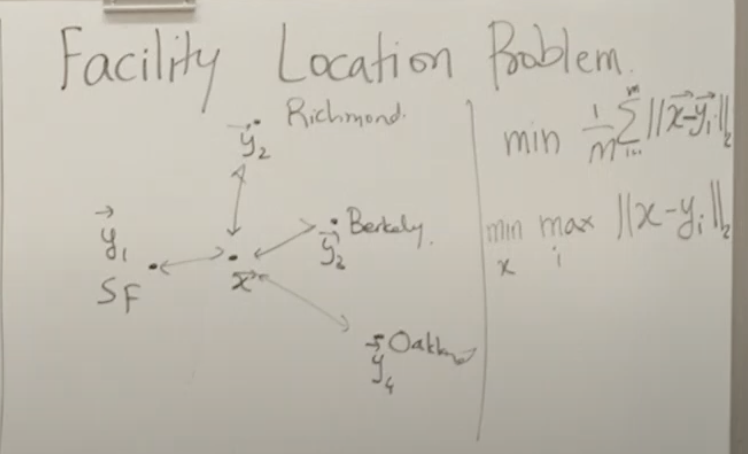 Facility Location Problem.
Richmond.
y⃗₂
y⃗₁
SF
x⃗
Berkely.
y⃗₂
Oakland
y⃗₄
min 1/m Σᵢ₌₁ᵐ ||x⃗-y⃗ᵢ||₂
min max ||x-yᵢ||₂
x i